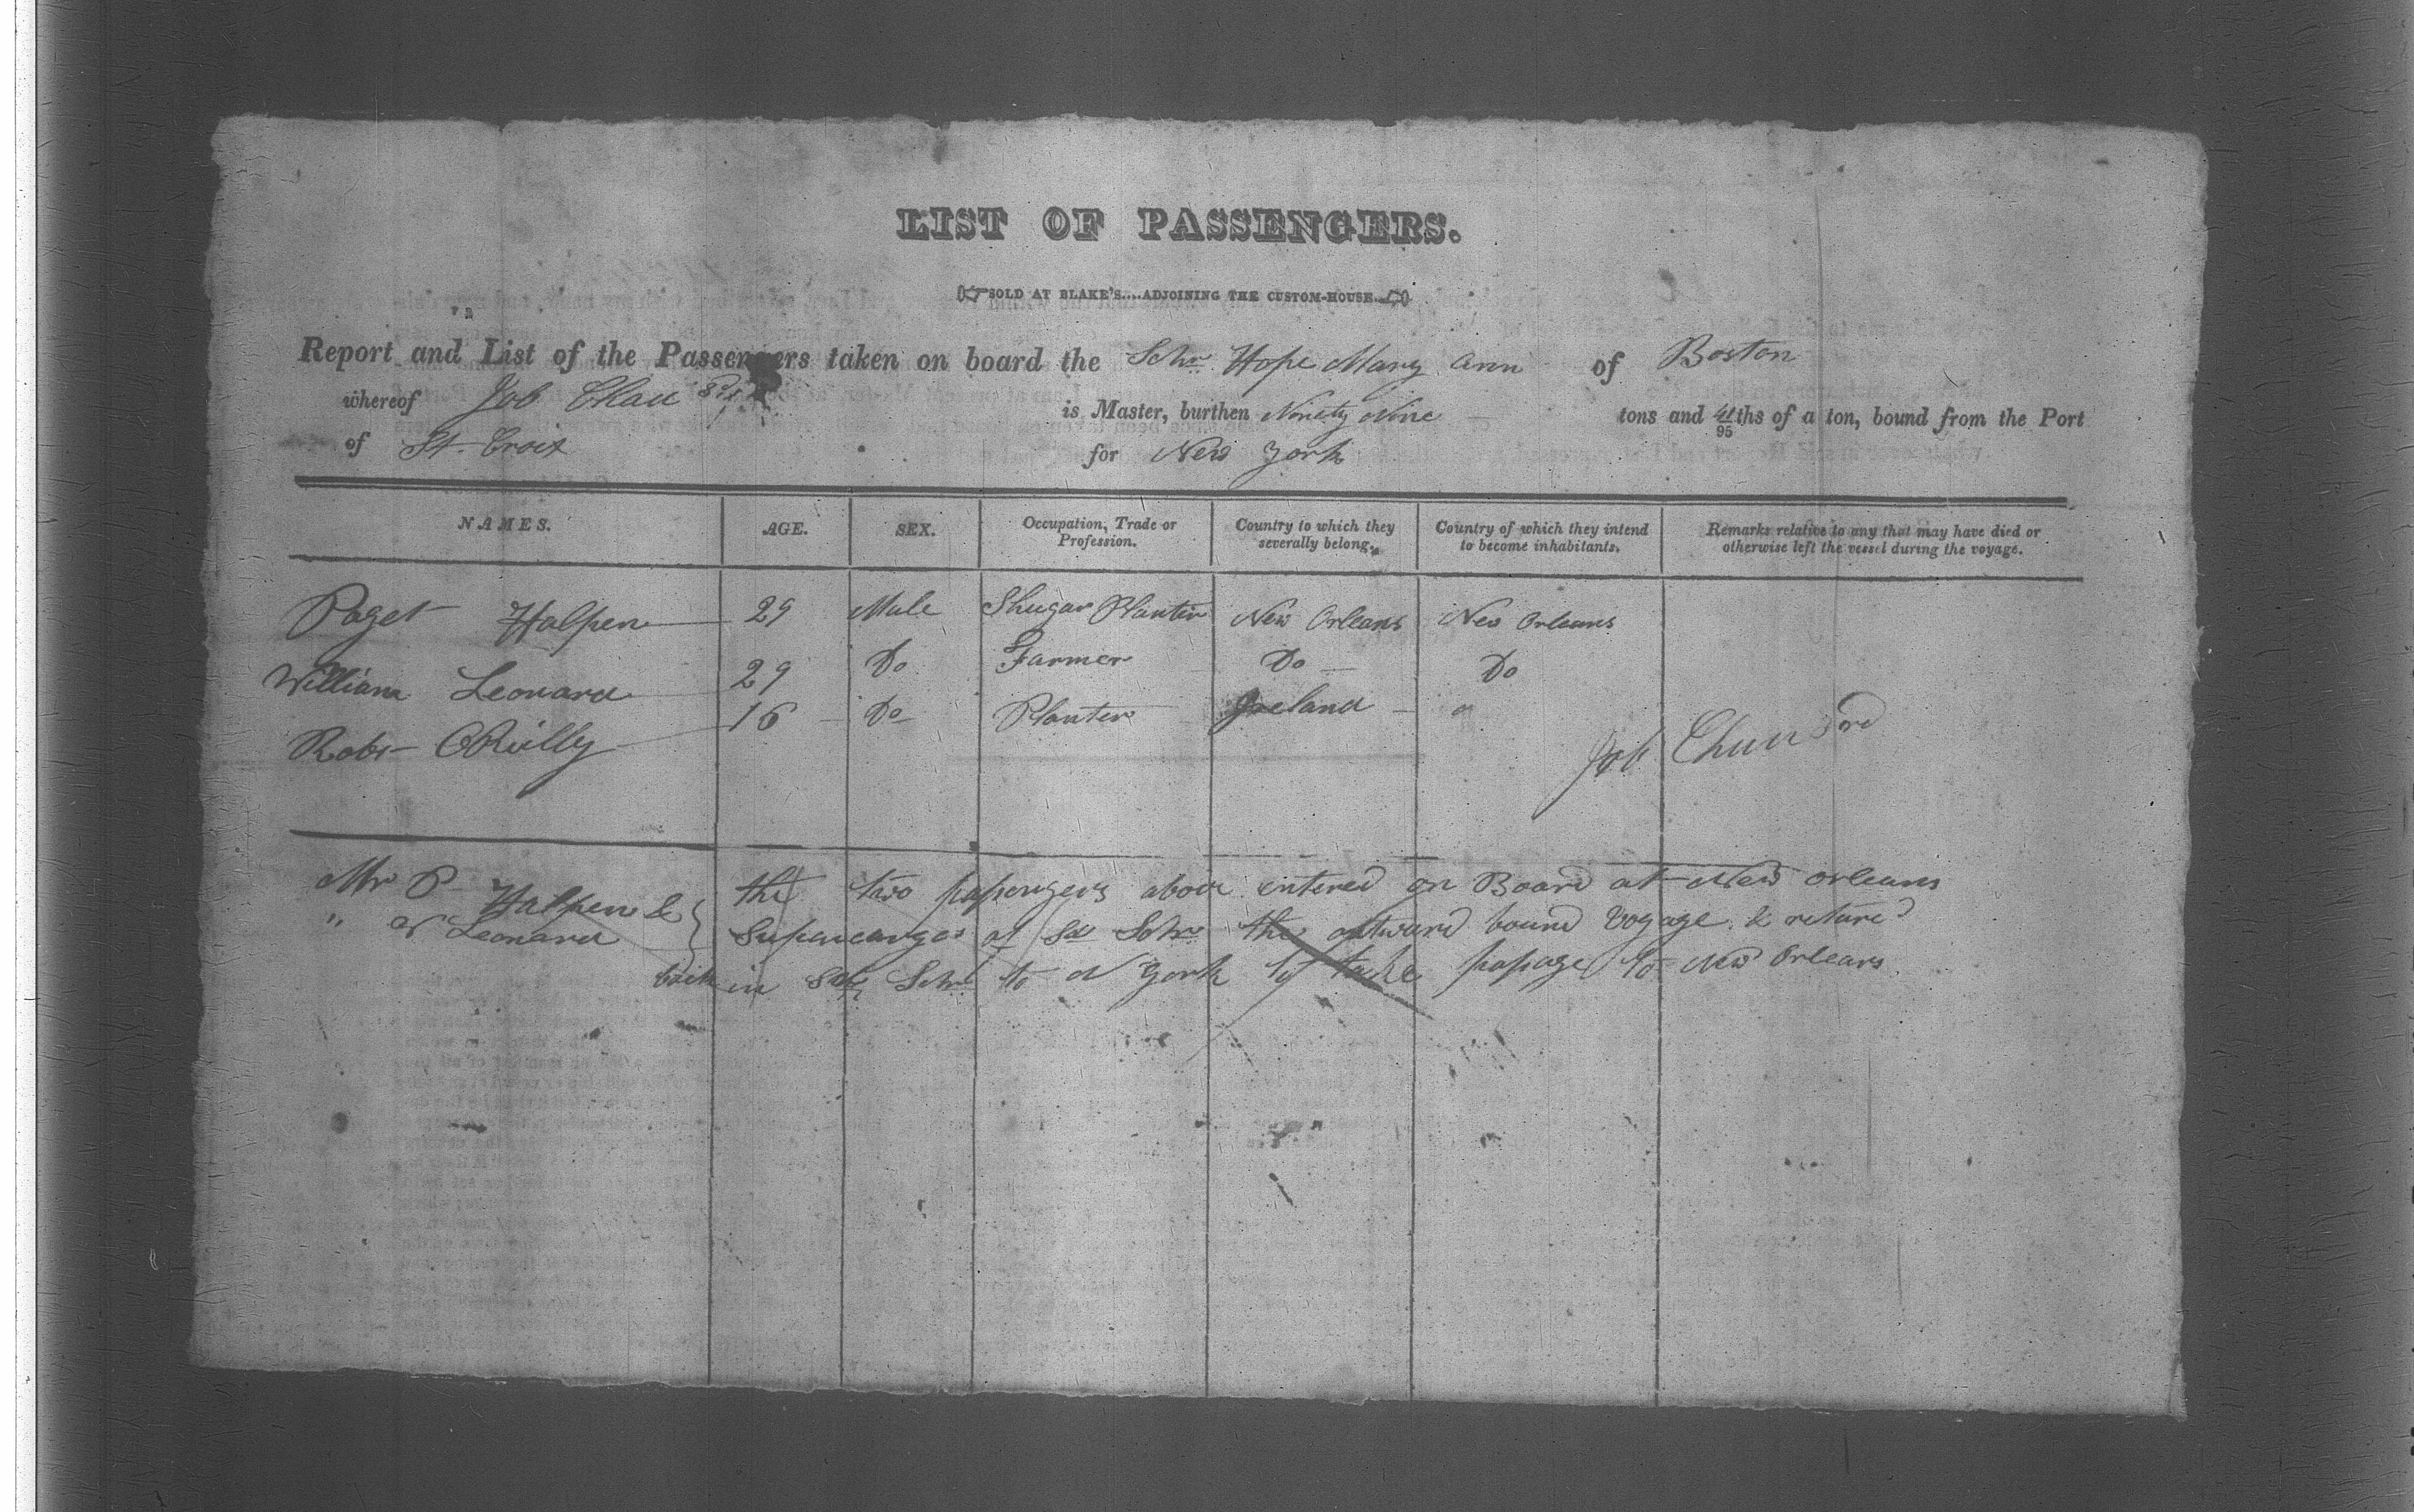 LIST OF PASSENGERS.
SOLD AT BLAKE'S....ADJOINING THE CUSTOM-HOUSE.
Report and List of the Passengers taken on board the Schr Hope Mary Ann of Boston
whereof Job Chase 3rd is Master, burthen Ninety Nine tons and 41/95ths of a ton, bound from the Port
of St. Croix for New York
NAMES. AGE. SEX. Occupation, Trade or Profession. Country to which they severally belong. Country of which they intend to become inhabitants. Remarks relative to any that may have died or otherwise left the vessel during the voyage.
Paget Halpen 29 Male Shugar Planter New Orleans New Orleans
William Leonard 29 Do Farmer Do Do
Robt ORielly 16 Do Planter Ireland "
Job Chase 3rd
Mr P Halpen & the two passengers above entered on Board at New Orleans
" W Leonard } Supercargos of Sd Schr the outward bound Voyage & returd
back in Sd Schr to N York to take passage to New Orleans